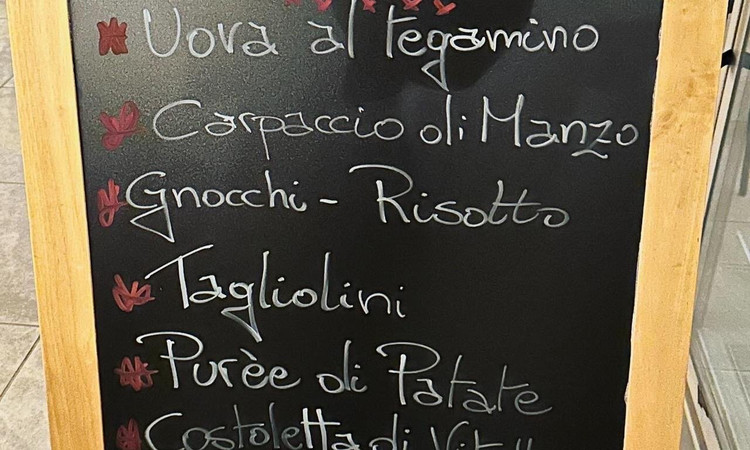 Uova al tegamino
Carpaccio di Manzo
Gnocchi - Risotto
Tagliolini
Purèe di Patate
Costoletta di